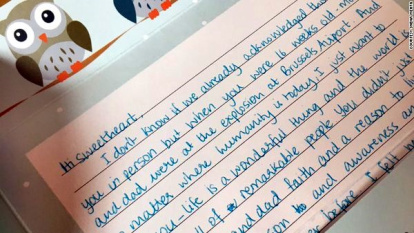 Hi Sweetheart,
I don't know if we already acknowledged the
you in person but when you were 16 weeks old mo
and dad were at the explosion at Brussels Airport. And
matter where humanity is today, I just want to
you - life is a wonderful thing and the world is
ll of remarkable people. You didn't just
and dad faith and a reason to
son to and awareness a
r before I fell